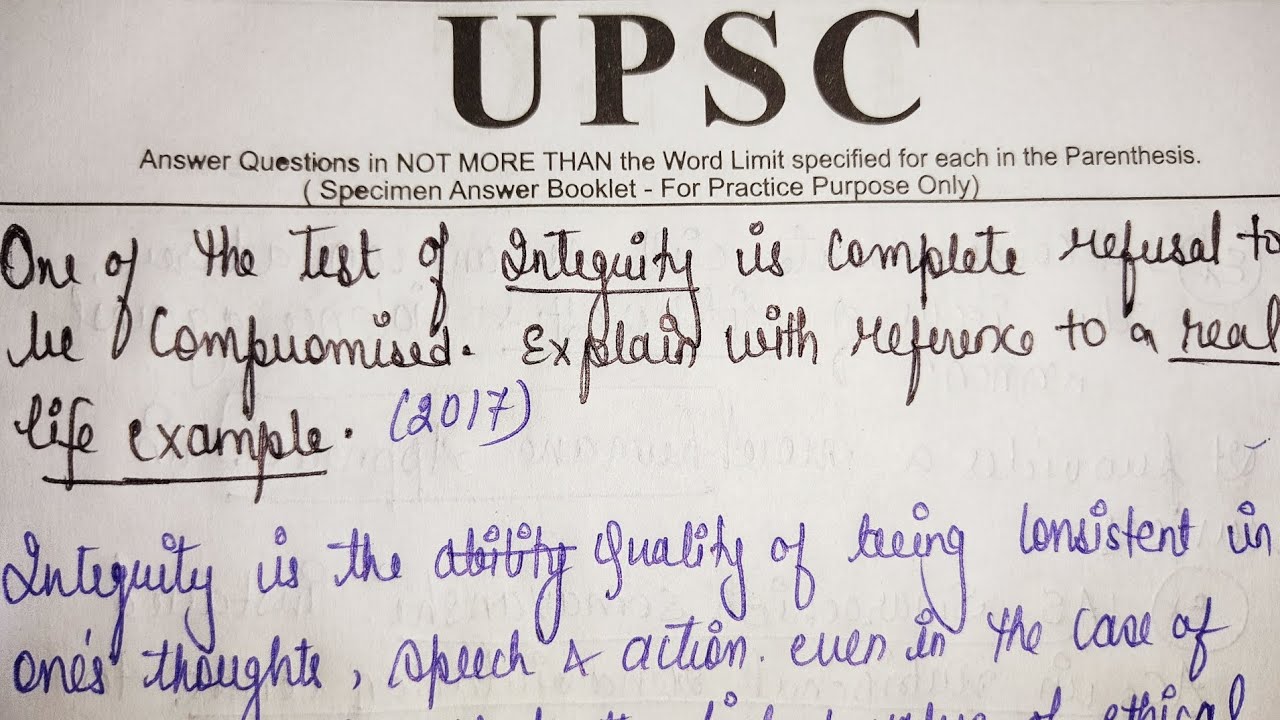 UPSC
Answer Questions in NOT MORE THAN the Word Limit specified for each in the Parenthesis.
( Specimen Answer Booklet - For Practice Purpose Only)
One of the test of Integrity is complete refusal to
be Compromised. Explain with reference to a real
life example. (2017)
Integrity is the ability Quality of being consistent in
one's thoughts, speech & action. even in the case of
of ethical